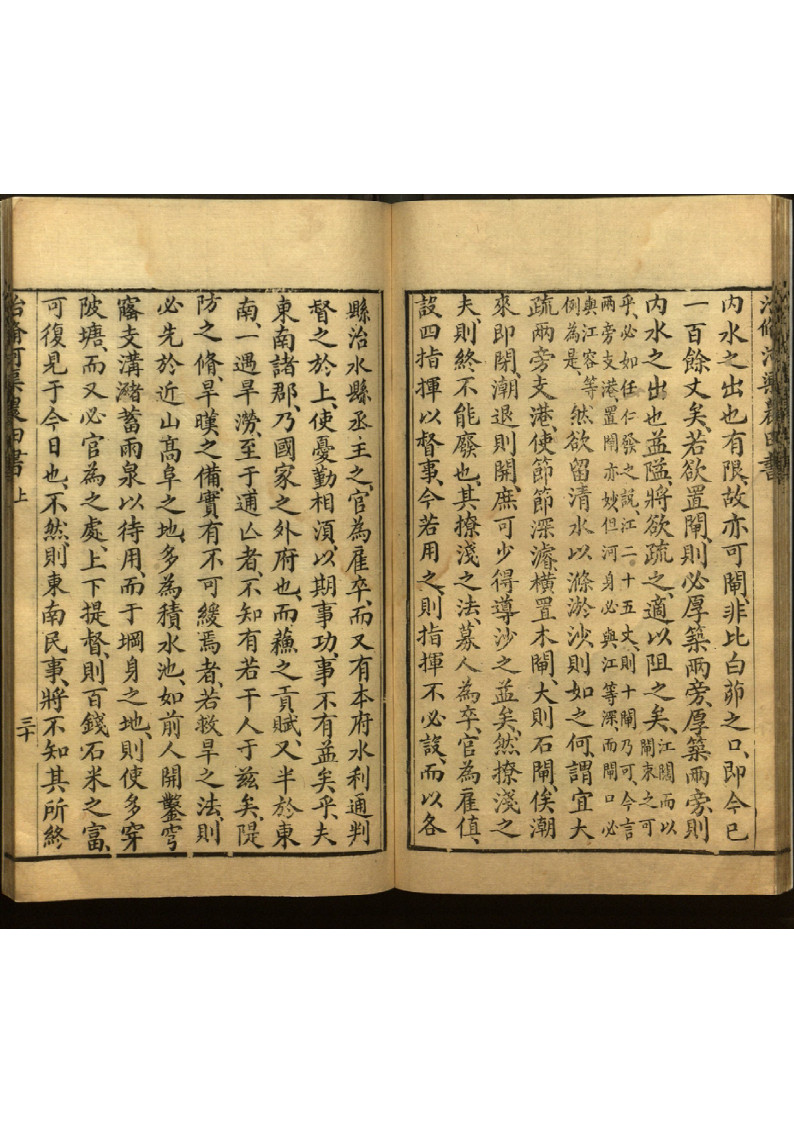 治脩河渠農田書
內水之出也有限、故亦可閘、非比白茆之口、即今已
一百餘丈矣、若欲置閘、則必厚築兩旁、厚築兩旁、則
內水之出也益隘、將欲疏之、適以阻之矣、江闊而以
閘束之可
乎、必如任仁發之說、江二十五丈、則十閘乃可、今言
兩旁支港置閘亦妙、但河身必與江等深、而閘口必
與江容等
例為是、然欲留清水以滌淤沙、則如之何、謂宜大
疏兩旁支港、使節節深濬、橫置木閘、大則石閘、俟潮
來即閉、潮退則開、庶可少得導沙之益矣、然撩淺之
夫、則終不能廢也、其撩淺之法、募人為卒、官為雇值、
設四指揮以督事、今若用之、則指揮不必設、而以各
縣治水縣丞主之、官為雇卒、而又有本府水利通判
督之於上、使憂勤相湏、以期事功、事不有益矣乎、夫
東南諸郡、乃國家之外府也、而蘓之貢賦、又半於東
南、一遇旱澇、至于逋亾者、不知有若干人于茲矣、隄
防之脩、旱暵之備、實有不可緩焉者、若救旱之法、則
必先於近山高阜之地、多為積水池、如前人開鑿穹
窿支溝、瀦蓄雨泉以待用、而于堈身之地、則使多穿
陂塘、而又必官為之處、上下提督、則百錢石米之富、
可復見于今日也、不然、則東南民事、將不知其所終
治脩河渠農田書 上 三十